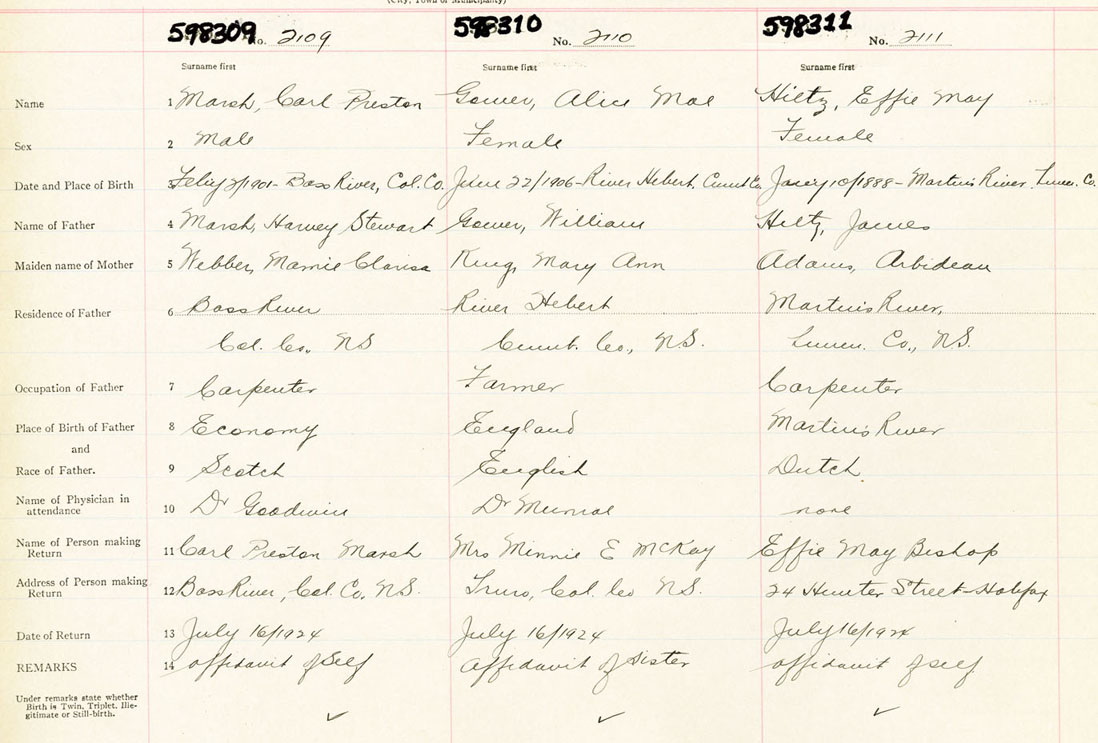 (City, Town or Municipality)
598309 No. 2109 598310 No. 2110 598311 No. 2111
Surname first Surname first Surname first
Name 1 Marsh, Carl Preston Gower, Alice Mae Hiltz, Effie May
Sex 2 Male Female Female
Date and Place of Birth 3 2/1901- Bass River, Col. Co. June 22/1906-River Hebert, Cumb Co. 10/1888- Martins River Lunen. Co.
Name of Father 4 Marsh, Harvey Stewart Gower, William Hiltz, James
Maiden name of Mother 5 Webber, Mamie Clarisa King, Mary Ann Adams, Arbidean
Residence of Father 6 Bass River River Hebert Martins River,
Col. Co. NS Cumb. Co., N.S. Lunen. Co., N.S.
Occupation of Father 7 Carpenter Farmer Carpenter
Place of Birth of Father 8 Economy England Martins River
and
Race of Father. 9 Scotch English Dutch
Name of Physician in
attendance 10 Dr Goodwin Dr none
Name of Person making
Return 11 Carl Preston Marsh Mrs Minnie E McKay Effie May Bishop
Address of Person making
Return 12 Bass River, Col. Co. N.S. Truro, Col. Co N.S. 24 Hunter Street-Halifax
Date of Return 13 July 16/1924 July 16/1924 July 16/1924
REMARKS 14 affidavit of Self Affidavit of Sister affidavit of self
Under remarks state whether
Birth is Twin, Triplet, Ille-
gitimate or Still-birth. ✓ ✓ ✓